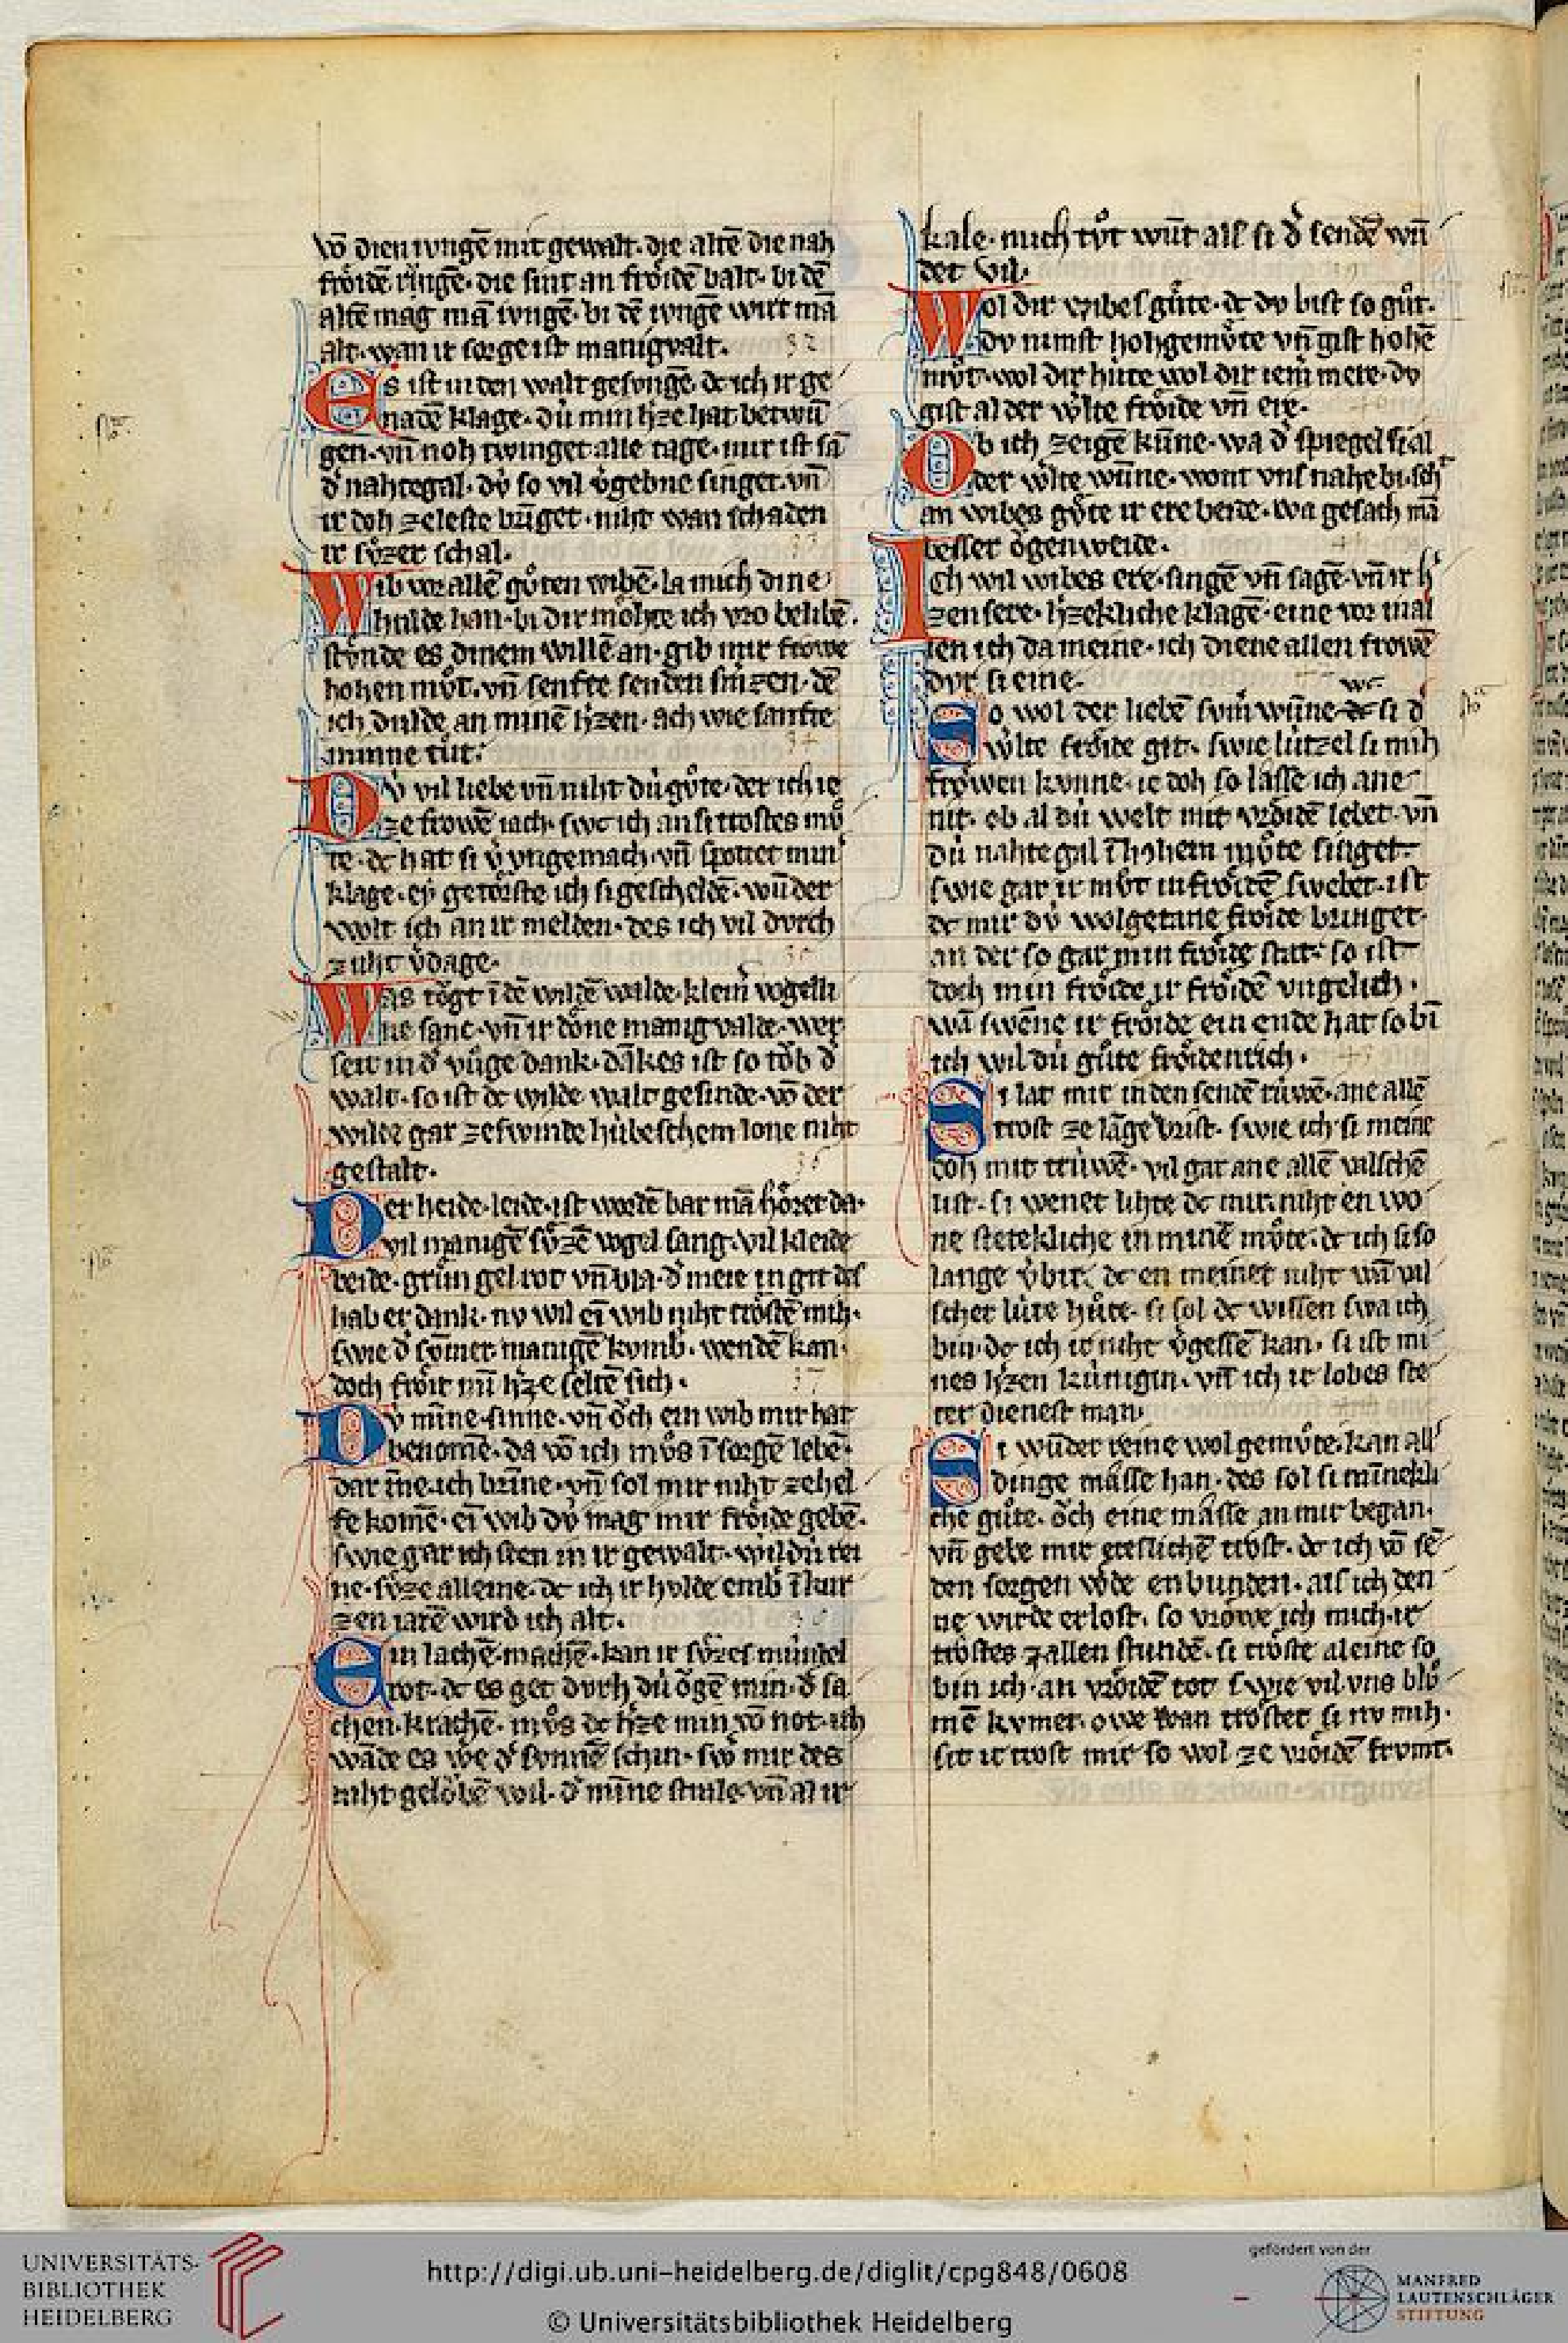 vō dien iungē mit gewalt· die altē die nah
froͤidē ringē· die sint an froͤidē balt· bi dē
altē mag mā iungē· bi dē iungē wirt mā
alt· wan ir sorge ist manigvalt· 32
Es ist in den walt gesungē· dc ich ir ge
nadē klage· dù min h'ze hat betwū
gen· vn̄ noh twinget alle tage· mir ist sā
d' nahtegal· dv́ so vil v'gebne singet· vn̄
ir doh zeleste bringet· niht wan schaden
ir svͤzer schal· 33
Wib vor allē guͦten wibē· la mich dine
hulde han· bi dir moͤhte ich vro belibē·
stuͤnde es dinem willē an· gib mir frowe
hohen muͦt· vn̄ senfte senden smzen· dē
ich dulde an minē h'zen· ach wie sanfte
minne tuͦt· 34
Dv́ vil liebe vn̄ niht dù guͦte· der ich ie
ze frowē iach· swc ich an si trostes muͦ
te· dc hat si v' vngemach· vn̄ spottet min
klage· ey getoͤrste ich si gescheldē· wūder
wolt ich an ir melden· des ich vil dvrch
zuht v'dage·
Was toͮgt ī dē wildē walde· kleinˀ vogelli
ne sanc· vn̄ ir doͤne manigvalde· wer
seit in d' vuͦge dank· dākes ist so toͮb d'
walt· so ist dc wilde walt gesinde· vō der
wilde gar zeswinde hùbeschem lone niht
gestalt· 36
Der heide· leide· ist wordē bar mā hoͤret da·
vil manigē svͤzē vogel sang· vil kleide
beide· gruͤn gel rot vn̄ bla· d' meie in git des
hab er dank· nv wil eī wib niht troͤstē mih·
swie d' somer manigē kvmb' wendē kan·
doch froͤit mī h'ze seltē sich· 37
Dv́ mīne· sinne· vn̄ oͮch ein wib mir hat
benomē· da vō ich muͦs ī sorgē lebē·
dar īne· ich brīne· vn̄ sol mir niht zehel
fe komē· eī wib dv́ mag mir froͤide gebē·
swie gar ich sten in ir gewalt· wil dù rei
ne· svͤze alleine· dc ich ir hvlde emb' ī kur
zen iarē wird ich alt·
Ein lachē· machē· kan ir svͤzes mùndel
rot· dc es get dvrh dù oͮgē min· d' sa
chen· krachē· muͦs dc h'ze min vō not· ich
wāde es we d' sonnē schin· swˀ mir des
niht geloͮbē wil· d' mīne strale vn̄ al ir
kale· mich tvͦt wūt als si d' sendē wū
det vil·
Wol dir wibes guͤte· dc dv bist so guͦt·
dv nimst hohgemuͤte vn̄ gist hohē
muͦt· wol dir hùte wol dir iem̄ mere· dv
gist al der w'lte froͤide vn̄ ere·
Ob ich zeigē kùne· wa d' spiegel si al
der w'lte wūne· wont vns nahe bi· sch'
an wibes guͤte ir ere beide· wa gesach mā
besser oͮgenweide·
Ich wil wibes ere· singē vn̄ sagē· vn̄ ir h'
zen sere· h'zekliche klagē· eine vor in al
len ich da meine· ich diene allen frowē
dvr si eine· wc
So wol der liebē som̄ wūne dc si d'
w'lte froͤide git· swie lùtzel si mih
froͤwen kvnne· ie doh so lasse ich ane
nit· ob al dù welt mit vroͤidē lebet· vn̄
dù nahtegal ī hohem muͦte singet·
swie gar ir muͦt in froͤidē swebet· ist
dc mir dv́ wolgetane froͤide bringet·
an der so gar min froͤide stat· so ist
doch min froͤide ir froͤidē vngelich·
wā swēne ir froͤide ein ende hat so bī
ich wil dù guͦte froͤidenrich·
Si lat mir in den sendē rùwē· ane allē
trost ze lāge vrist· swie ich si meine
doh mit trùwē· vil gar ane allē valschē
list· si wenet lihte dc mir niht en wo
ne stetekliche in minē muͦte· dc ich si so
lange v'bir· dc en meinet niht wā val
scher lùte huͦte· si sol dc wissen swa ich
bin· dc ich ir niht v'gessē kan· si ist mi
nes h'zen kùnigin· vn̄ ich ir lobes ste
ter dienest man·
Si wūder reine wol gemuͦte· kan all'
dinge masse han· des sol si mīnekli
che guͦte· oͮch eine masse an mir began·
vn̄ gebe mir etzlichē trost· dc ich vō sē
den sorgen w'de enbunden· als ich den
ne wirde erlost· so vroͤwe ich mich· ir
trostes zallen stundē· si troͤste aleine so
bin ich· an vroͤidē tot swie vil vns bluͦ
mē kvmet· owe wan troͤstet si nv mih·
sit ir trost mir so wol ze vroͤidē frvmt·
UNIVERSITÄTS-
BIBLIOTHEK
HEIDELBERG
http://digi.ub.uni-heidelberg.de/diglit/cpg848/0608
© Universitätsbibliothek Heidelberg
gefördert von der
MANFRED
LAUTENSCHLÄGER
STIFTUNG